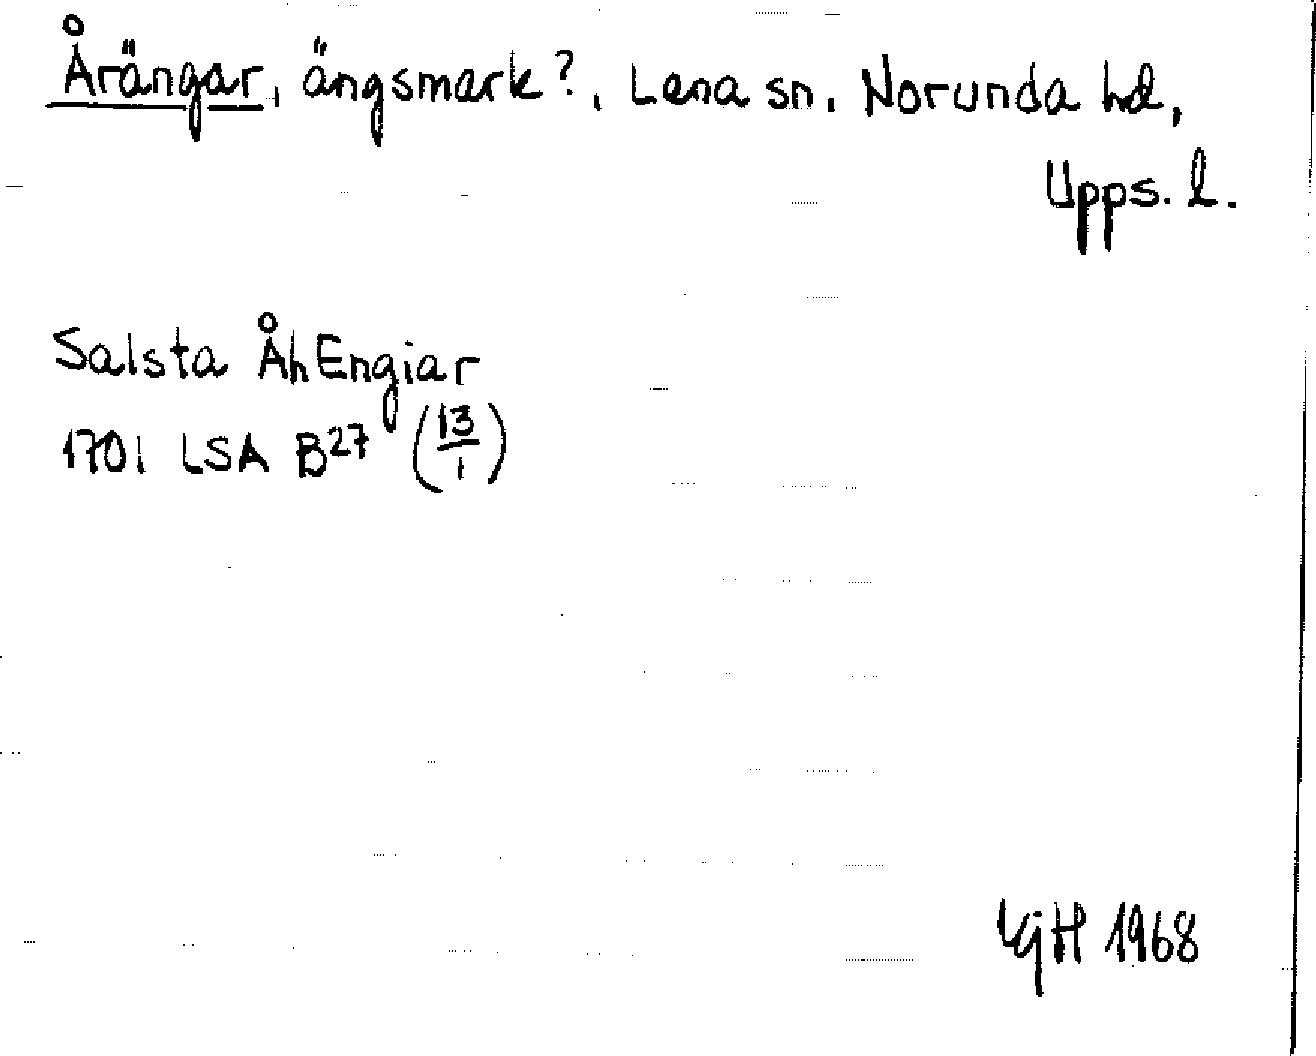 Årängar, ängsmark?, Lena sn. Norunda hd,
Upps. l.
Salsta ÅhEngiar
1701 LSA B27 (13/1)
1968